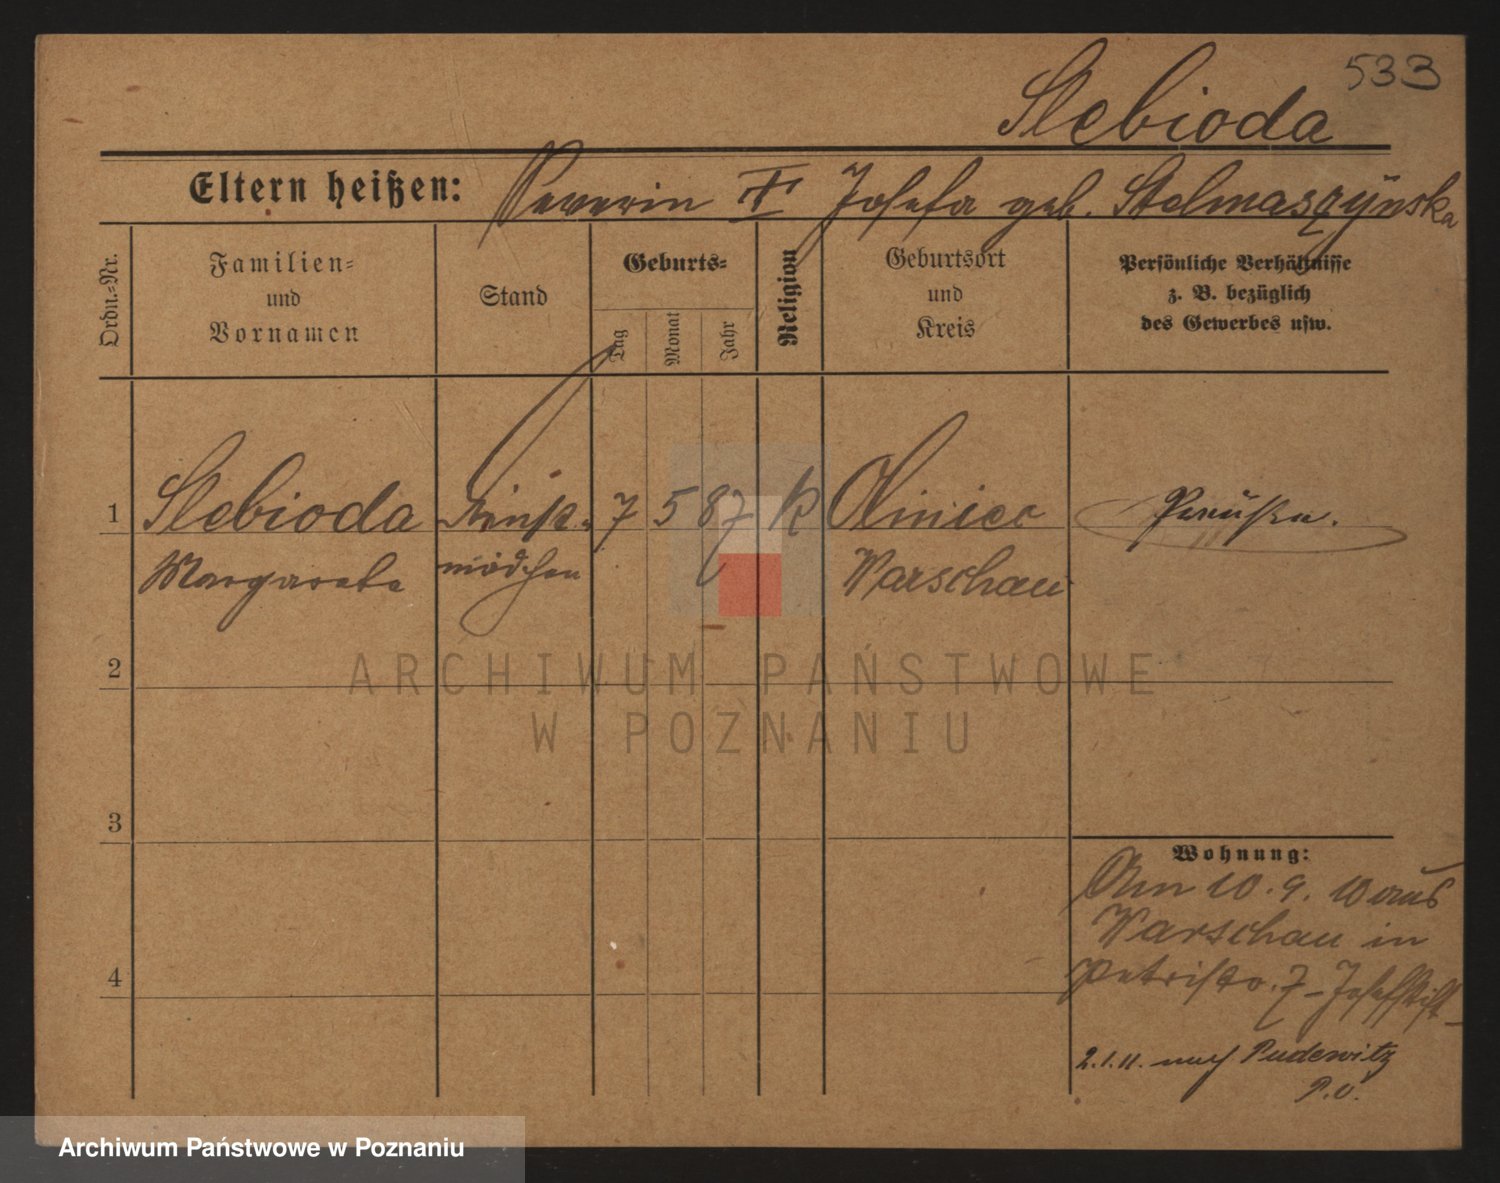 533
Slebioda
Eltern heißen: Severin † Josefa geb. Stelmaszÿnska
Ordn.-Nr.
Familien-
und
Vornamen
Stand
Geburts-
Tag
Monat
Jahr
Religion
Geburtsort
und
Kreis
Persönliche Verhältnisse
z. B. bezüglich
des Gewerbes usw.
1 Slebioda Dienst- 7 5 87 k Preuße.
Margarete mädchen Warschau
2
ARCHIWUM PAŃSTWOWE
W POZNANIU
3
Wohnung:
Am 10. 9. 10 aus
Warschau in
4 Petristr. 7 - Josefstift
2.1.11. nach Pudewitz
P.O.
Archiwum Państwowe w Poznaniu